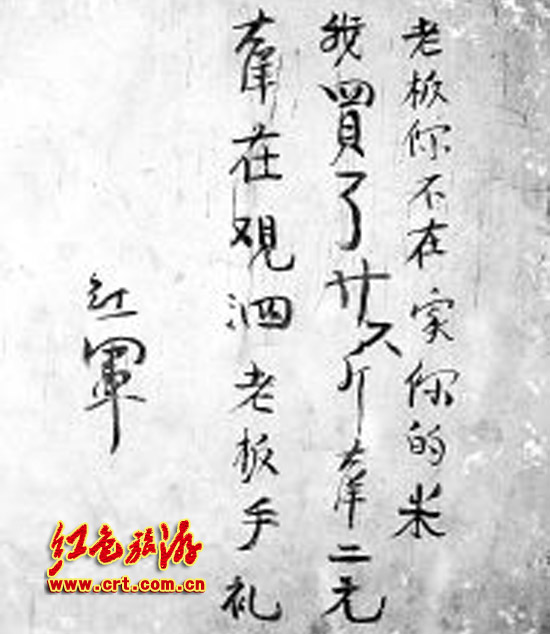 老板你不在家你的米
我買了廿六斤大洋二元
大洋在观泗老板手礼
红軍
红色旅游
www.crt.com.cn